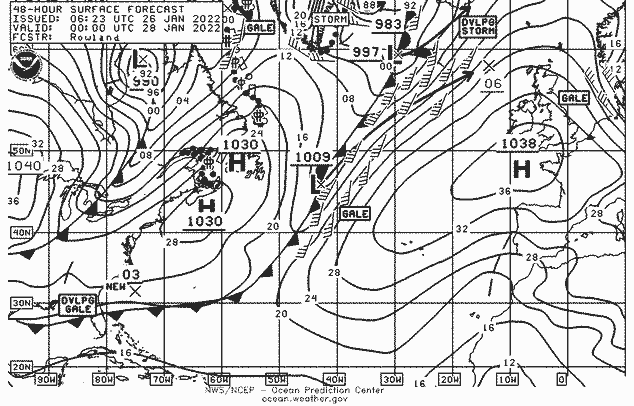 48-HOUR SURFACE FORECAST
ISSUED: 06:23 UTC 26 JAN 2022
VALID: 00:00 UTC 28 JAN 2022
FCSTR: Rowland
00
GALE
20
16
STORM
88
983
DVLPG
STORM
997
L
12
12
16
L
92
990
96
00
04
08
06
GALE
24
16
1030
H
1009
L
1038
H
36
50N
32
1040
28
08
36
H
1030
GALE
20
28
32
28
40N
03
NEW
28
28
24
20
DVLPG
GALE
30N
16
16
12
20N
16
90W
80W
70W
60W
50W
40W
30W
20W
10W
0
NWS/NCEP - Ocean Prediction Center
ocean.weather.gov